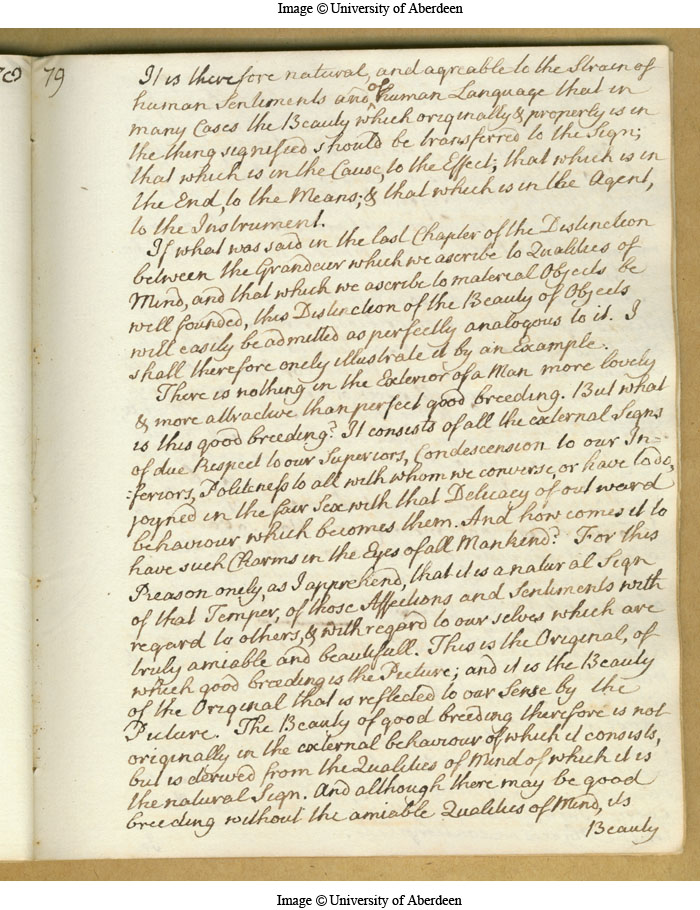 Image © University of Aberdeen
79
It is therefore natural, and agreable to the Strain of
human Sentiments and of human Language that in
many Cases the Beauty which originally & properly is in
the thing signified should be transferred to the Sign;
that which is in the Cause, to the Effect; that which is in
the End, to the Means; & that which is in the Agent,
to the Instrument.
If what was said in the last Chapter of the Distinction
between the Grandeur which we ascribe to Qualities of
Mind, and that which we ascribe to material Objects be
well founded, this Distinction of the Beauty of Objects
will easily be admitted as perfectly analogous to it. I
shall therefore onely illustrate it by an Example.
There is nothing in the Exterior of a Man more lovely
& more attractive than perfect good breeding. But what
is this good breeding? It consists of all the external Signs
of due Respect to our Superiors, Condescension to our In-
:feriors, Politeness to all with whom we converse or have to do,
joyned in the fair Sex with that Delicacy of outward
behaviour which becomes them. And how comes it to
have such Charms in the Eyes of all Mankind? For this
Reason onely, as I apprehend, that it is a natural Sign
of that Temper, of those Affections and Sentiments with
regard to others, & with regard to our selves which are
truly amiable and beautifull. This is the Original, of
which good breeding is the Picture; and it is the Beauty
of the Original that is reflected to our Sense by the
Picture. The Beauty of good breeding therefore is not
originally in the external behaviour of which it consists,
but is derived from the Qualities of Mind of which it is
the natural Sign. And although there may be good
breeding without the amiable Qualities of Mind, its
Beauty
Image © University of Aberdeen